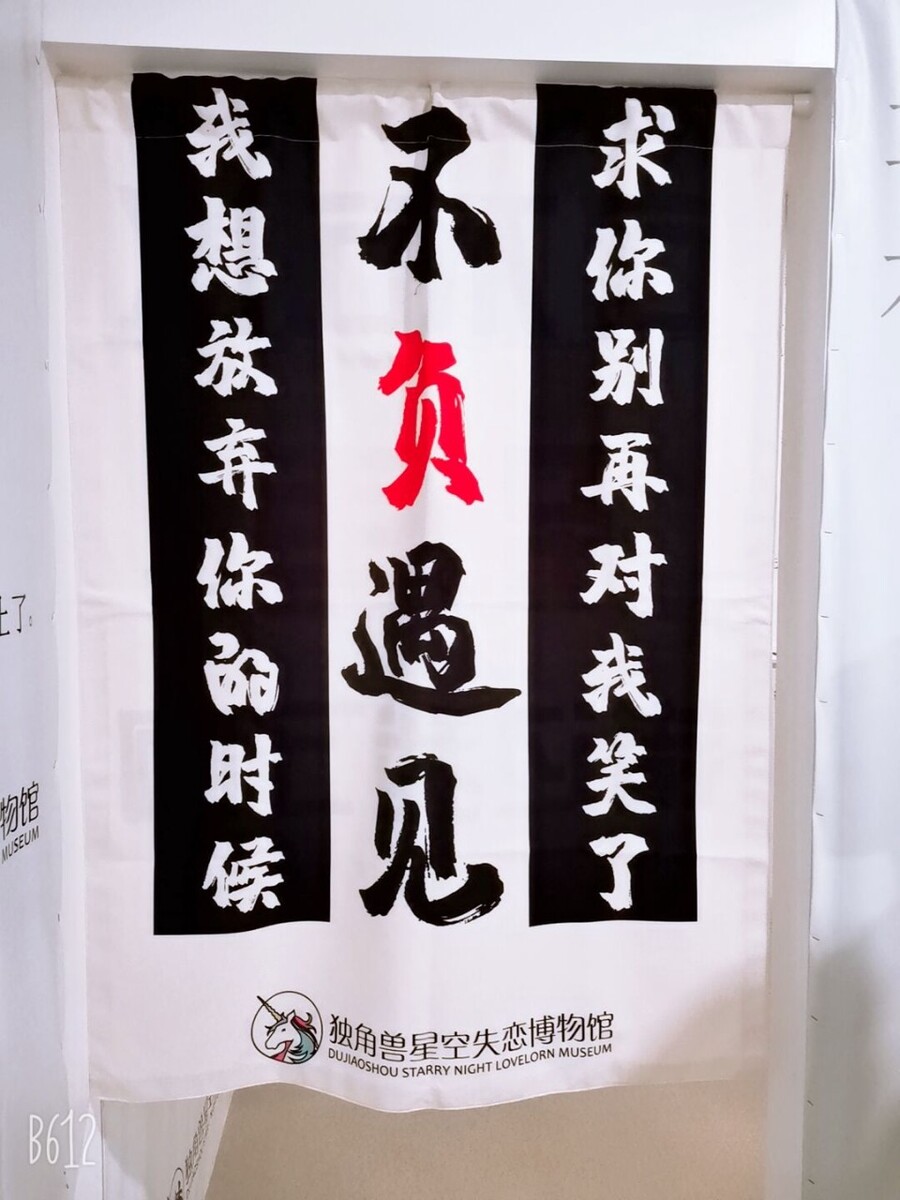 我想放弃你的时候
不负遇见
求你别再对我笑了
独角兽星空失恋博物馆
DUJIAOSHOU STARRY NIGHT LOVELORN MUSEUM
上了。
物馆
MUSEUM
独角兽星
B612